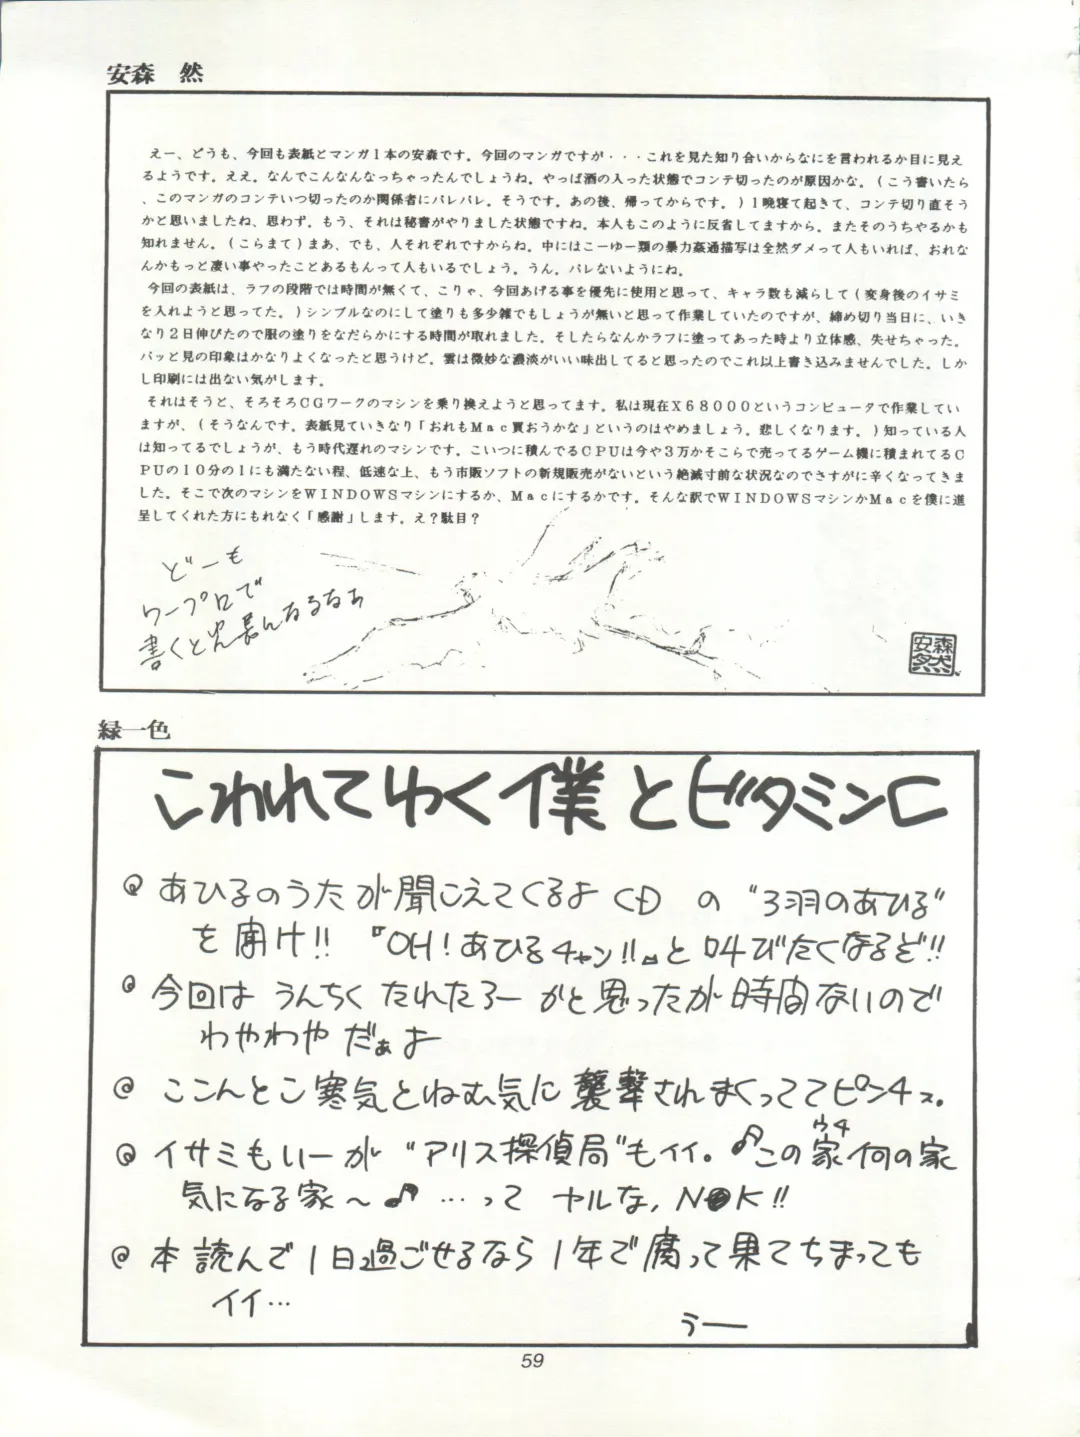 安森 然
えー、どうも、今回も表紙とマンガ1本の安森です。今回のマンガですが・・・これを見た知り合いからなにを言われるか目に見え
るようです。ええ。なんでこんなんなっちゃったんでしょうね。やっぱ酒の入った状態でコンテ切ったのが原因かな。(こう書いたら
、このマンガのコンテいつ切ったのか関係者にバレバレ。そうです。あの後、帰ってからです。)1晩寝て起きて、コンテ切り直そう
かと思いましたね、思わず。もう、それは秘書がやりました状態ですね。本人もこのように反省してますから。またそのうちやるかも
知れません。(こらまて)まあ、でも、人それぞれですからね。中にはこーゆー類の暴力姦通描写は全然ダメって人もいれば、おれな
んかもっと凄い事やったことあるもんって人もいるでしょう。うん。バレないようにね。
今回の表紙は、ラフの段階では時間が無くて、こりゃ、今回あげる事を優先に使用と思って、キャラ数も減らして(変身後のイサミ
を入れようと思ってた。)シンプルなのにして塗りも多少雑でもしょうが無いと思って作業していたのですが、締め切り当日に、いき
なり2日伸びたので服の塗りをなだらかにする時間が取れました。そしたらなんかラフに塗ってあった時より立体感、失せちゃった。
パッと見の印象はかなりよくなったと思うけど。雲は微妙な濃淡がいい味出してると思ったのでこれ以上書き込みませんでした。しか
し印刷には出ない気がします。
それはそうと、そろそろCGワークのマシンを乗り換えようと思ってます。私は現在X68000というコンピュータで作業してい
ますが、(そうなんです。表紙見ていきなり「おれもMac買おうかな」というのはやめましょう。悲しくなります。)知っている人
は知ってるでしょうが、もう時代遅れのマシンです。こいつに積んでるCPUは今や3万かそこらで売ってるゲーム機に積まれてるC
PUの10分の1にも満たない程、低速な上、もう市販ソフトの新規販売がないという絶滅寸前な状況なのでさすがに辛くなってきま
した。そこで次のマシンをWINDOWSマシンにするか、Macにするかです。そんな訳でWINDOWSマシンかMacを僕に進
呈してくれた方にもれなく「感謝」します。え?駄目?
どーも
ワープロで
書くと文長んなるなぁ
安森
然
緑一色
こわれてゆく僕とビタミンC
あひるのうたが聞こえてくるよ CD の "3羽のあひる"
を聞け!! 『OH!あひるチャン!!』と叫びたくなるぞ!!
今回は うんちく たれたろー かと思ったが時間ないので
わやわや だぁよ
ここんとこ寒気とねむ気に襲撃されまくっててピンチス。
イサミもいーが "アリス探偵局"もイイ。♪この家(ウチ)何の家
気になる家〜♪ …って ヤルな, N●K!!
本読んで1日過ごせるなら1年で腐って果てちまっても
イイ…
うー
59